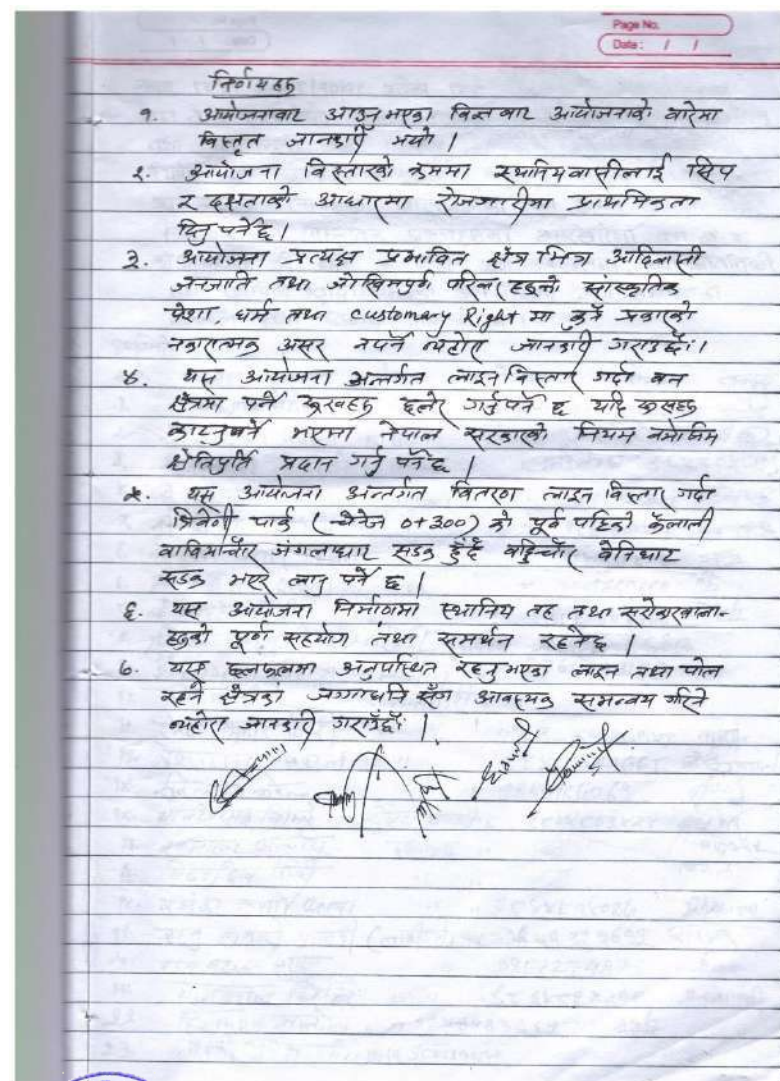 Page No.
Date: / /
निर्णयहरु
१. आयोजनाबाट आउनु भएका बाट आयोजनाको बारेमा
विस्तृत जानकारी भयो ।
२. आयोजना विस्तारको क्रममा स्थानियवासीलाई सिप
र दक्षताको आधारमा रोजगारीमा प्राथमिकता
दिनु पर्नेछ ।
३. आयोजना प्रत्यक्ष प्रभावित क्षेत्र भित्र आदिवासी
जनजाति तथा जोखिमपुर्ण परिवारहरुको सांस्कृतिक
पेशा, धर्म तथा customary Right मा कुनै प्रकारको
नकारात्मक असर नपर्ने व्यहोरा जानकारी गराउदछौं ।
४. यस आयोजना अन्तर्गत लाइन विस्तार गर्दा वन
क्षेत्रमा पर्ने रुखहरु छलेर गर्नु पर्ने छ यदि रुखहरु
काट्नुपर्ने भएमा नेपाल सरकारको नियम बमोजिम
क्षेतिपुर्ति प्रदान गर्नु पर्नेछ ।
५. यस आयोजना अन्तर्गत वितरण लाइन विस्तार गर्दा
त्रिवेणी पार्क (चेनेज 0+300) को पूर्व पट्टिको कैलाली
जंगलाघार सडक हुँदै वेनिघाट
सडक भएर लानु पर्ने छ ।
६. यस आयोजना निर्माणमा स्थानिय तह तथा सरोकारवाला-
हरुको पूर्ण सहयोग तथा समर्थन रहनेछ ।
७. यस छलफलमा अनुपस्थित रहनु भएका लाइन तथा पोल
रहने क्षेत्रका जग्गाधनि सँग आवश्यक समन्वय गरिने
व्यहोरा जानकारी गराउँदछौं ।